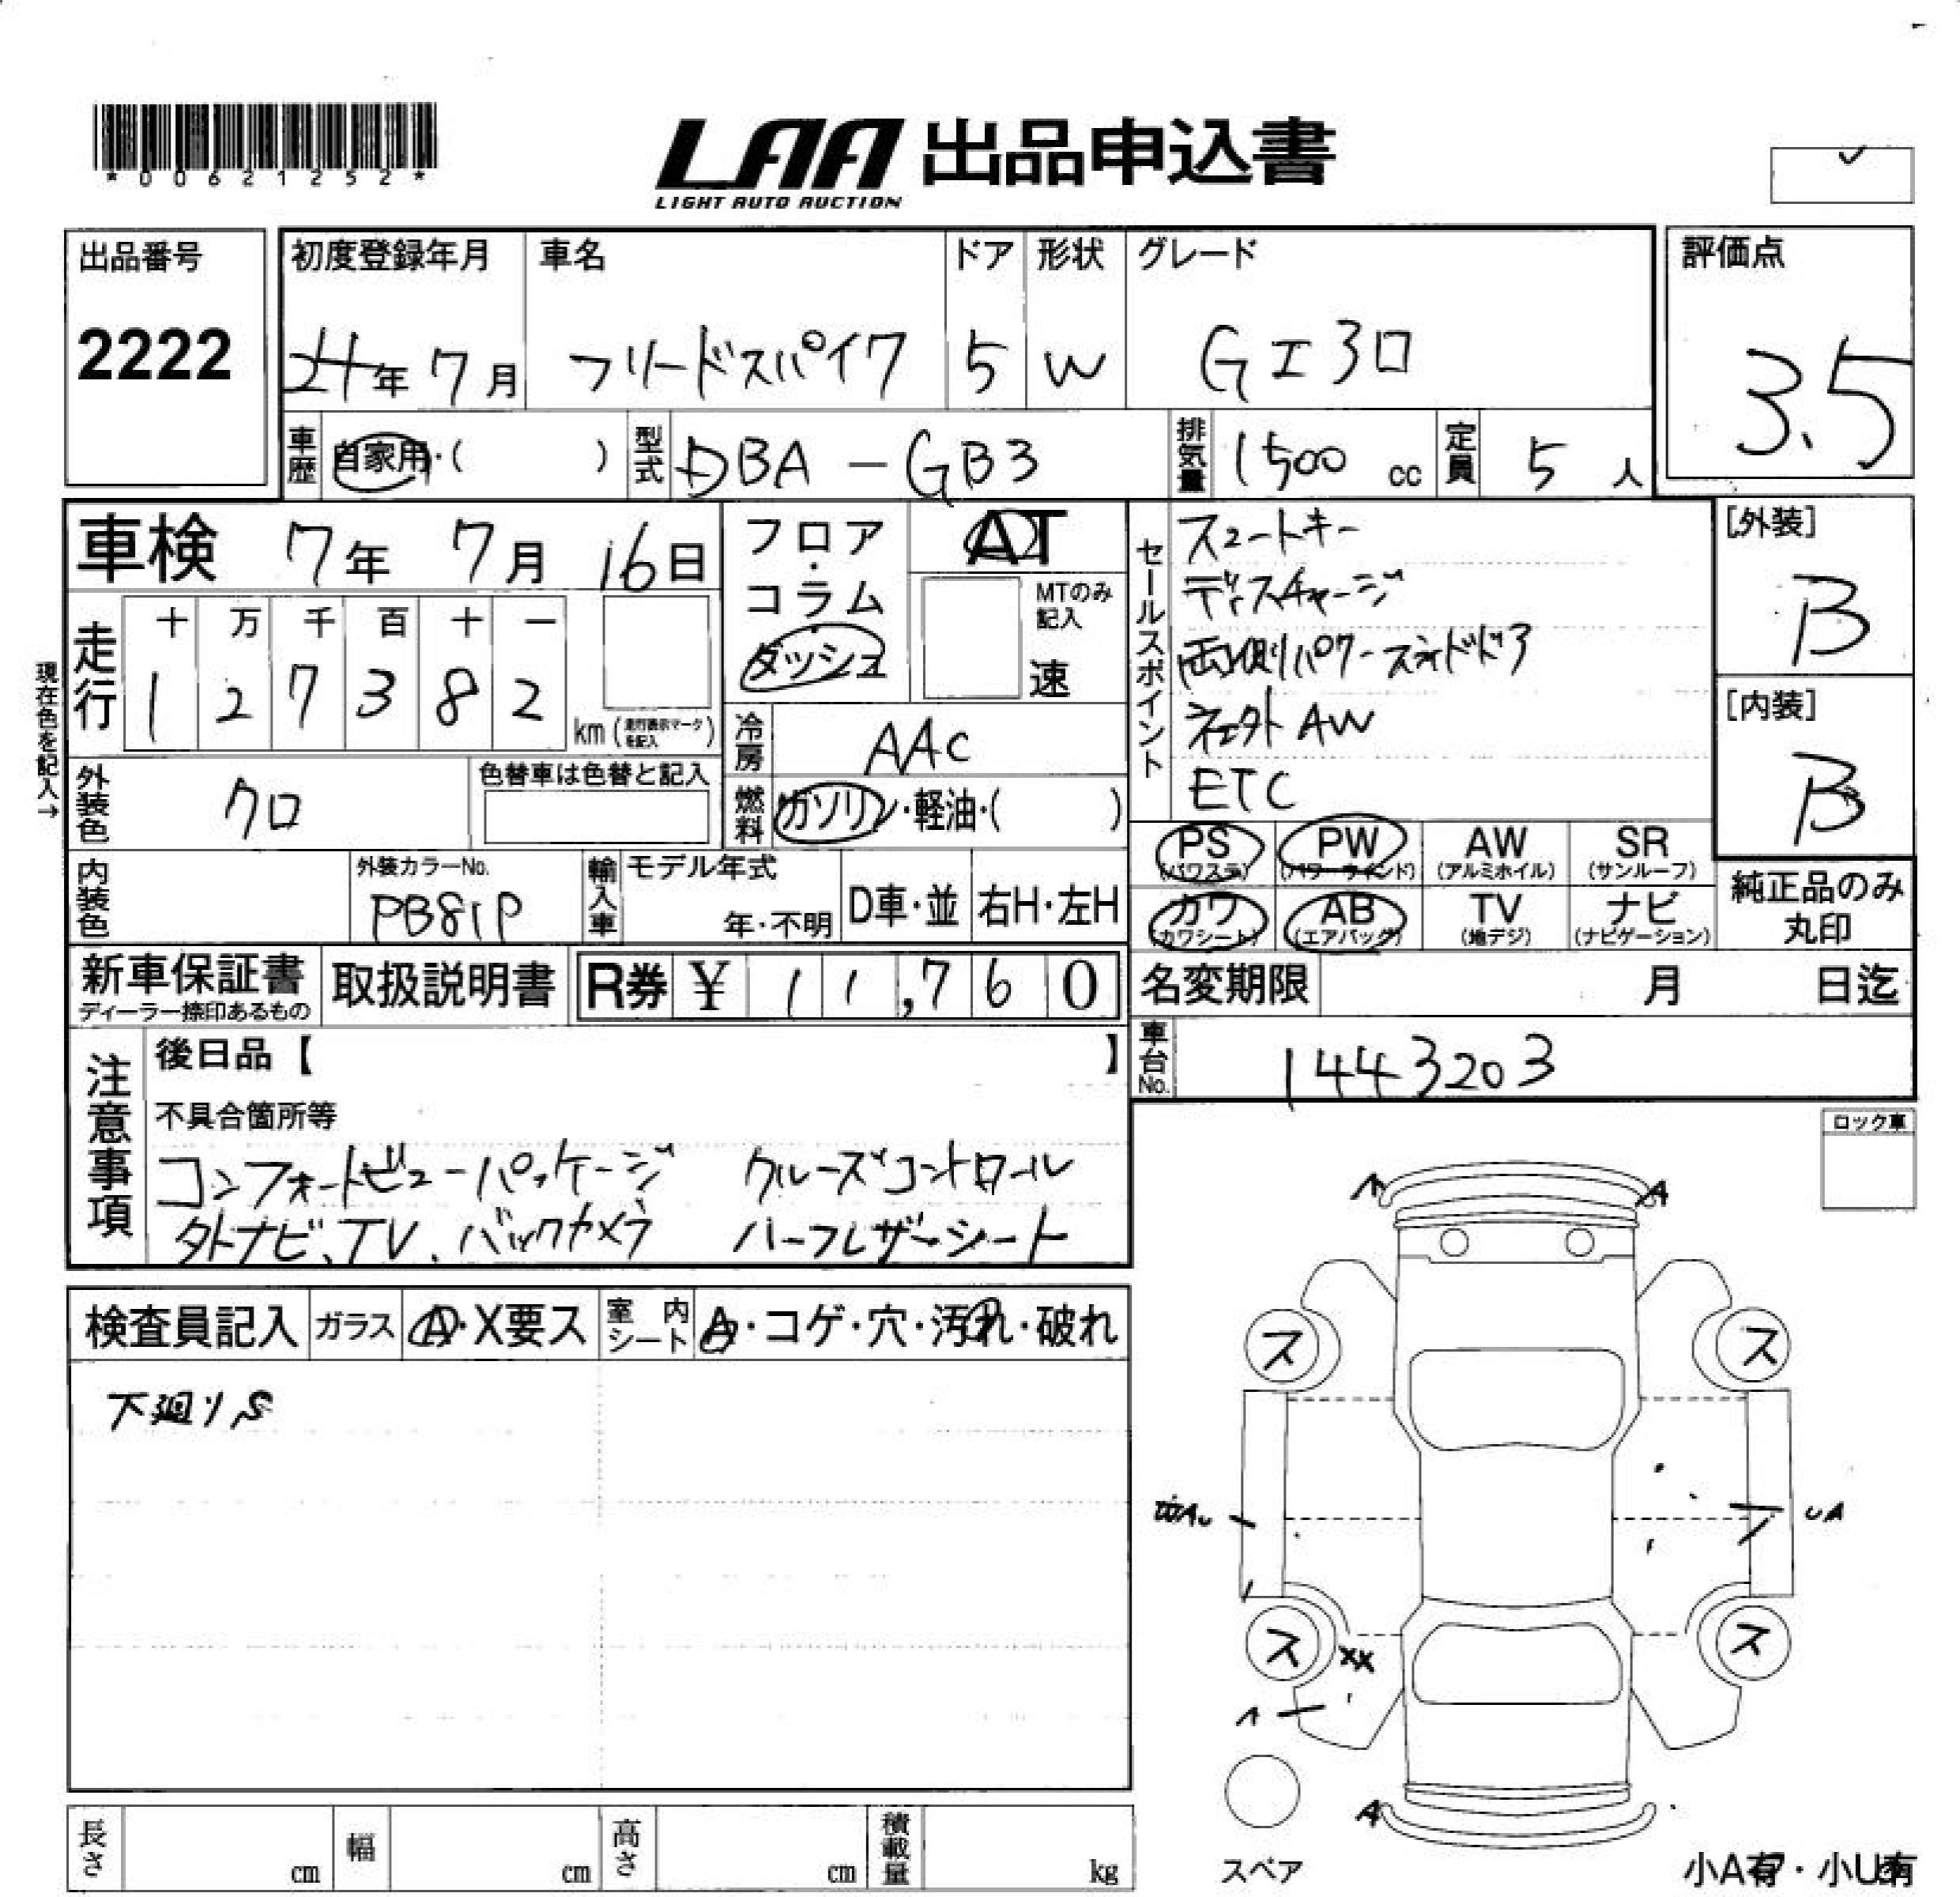 *00621252*
LAA 出品申込書
LIGHT AUTO AUCTION
出品番号
2222
初度登録年月
24年 7月
車名
フリードスパイク
ドア
5
形状
W
グレード
Gエアロ
評価点
3.5
車歴
自家用・( )
型式
DBA-GB3
排気量
1500 cc
定員
5 人
車検 7年 7月 16日
フロア・コラム
ダッシュ
AT
MTのみ記入
速
走行
十 万 千 百 十 一
1 2 7 3 8 2
km (走行表示マークを記入)
現在色を記入→
冷房
AAC
燃料
ガソリン・軽油・( )
外装色
クロ
色替車は色替と記入
内装色
外装カラーNo.
PB81P
輸入車
モデル年式
年・不明
D車・並
右H・左H
セールスポイント
スマートキー
ディスチャージ
両側パワースライドドア
社外AW
ETC
PS (パワステ)
PW (パワーウインド)
AW (アルミホイル)
SR (サンルーフ)
カワ (カワシート)
AB (エアバッグ)
TV (地デジ)
ナビ (ナビゲーション)
[外装]
B
[内装]
B
純正品のみ丸印
新車保証書
ディーラー捺印あるもの
取扱説明書
R券 ¥ 11,760
名変期限 月 日迄
車台No.
1443203
注意事項
後日品【 】
不具合箇所等
コンフォートビューパッケージ クルーズコントロール
外ナビ、TV、バックカメラ ハーフレザーシート
ロック車
検査員記入
ガラス
A・X要ス
室内シート
A・コゲ・穴・汚れ・破れ
下廻りS
A
A
ス
ス
UA
ス
XX
ス
A
スペア
小A有・小U有
長さ cm
幅 cm
高さ cm
積載量 kg